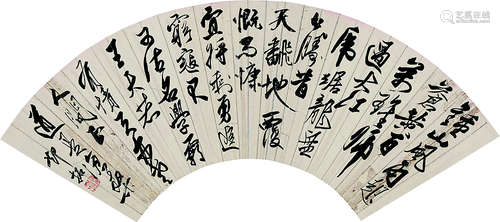 鐘山風雨起
蒼黃百萬雄師
過大江
虎踞龍盤
今勝昔
天翻地覆
慨而慷
宜將剩勇追
窮寇不
可沽名學霸
王天若
有情天亦老
人間正
道是滄桑